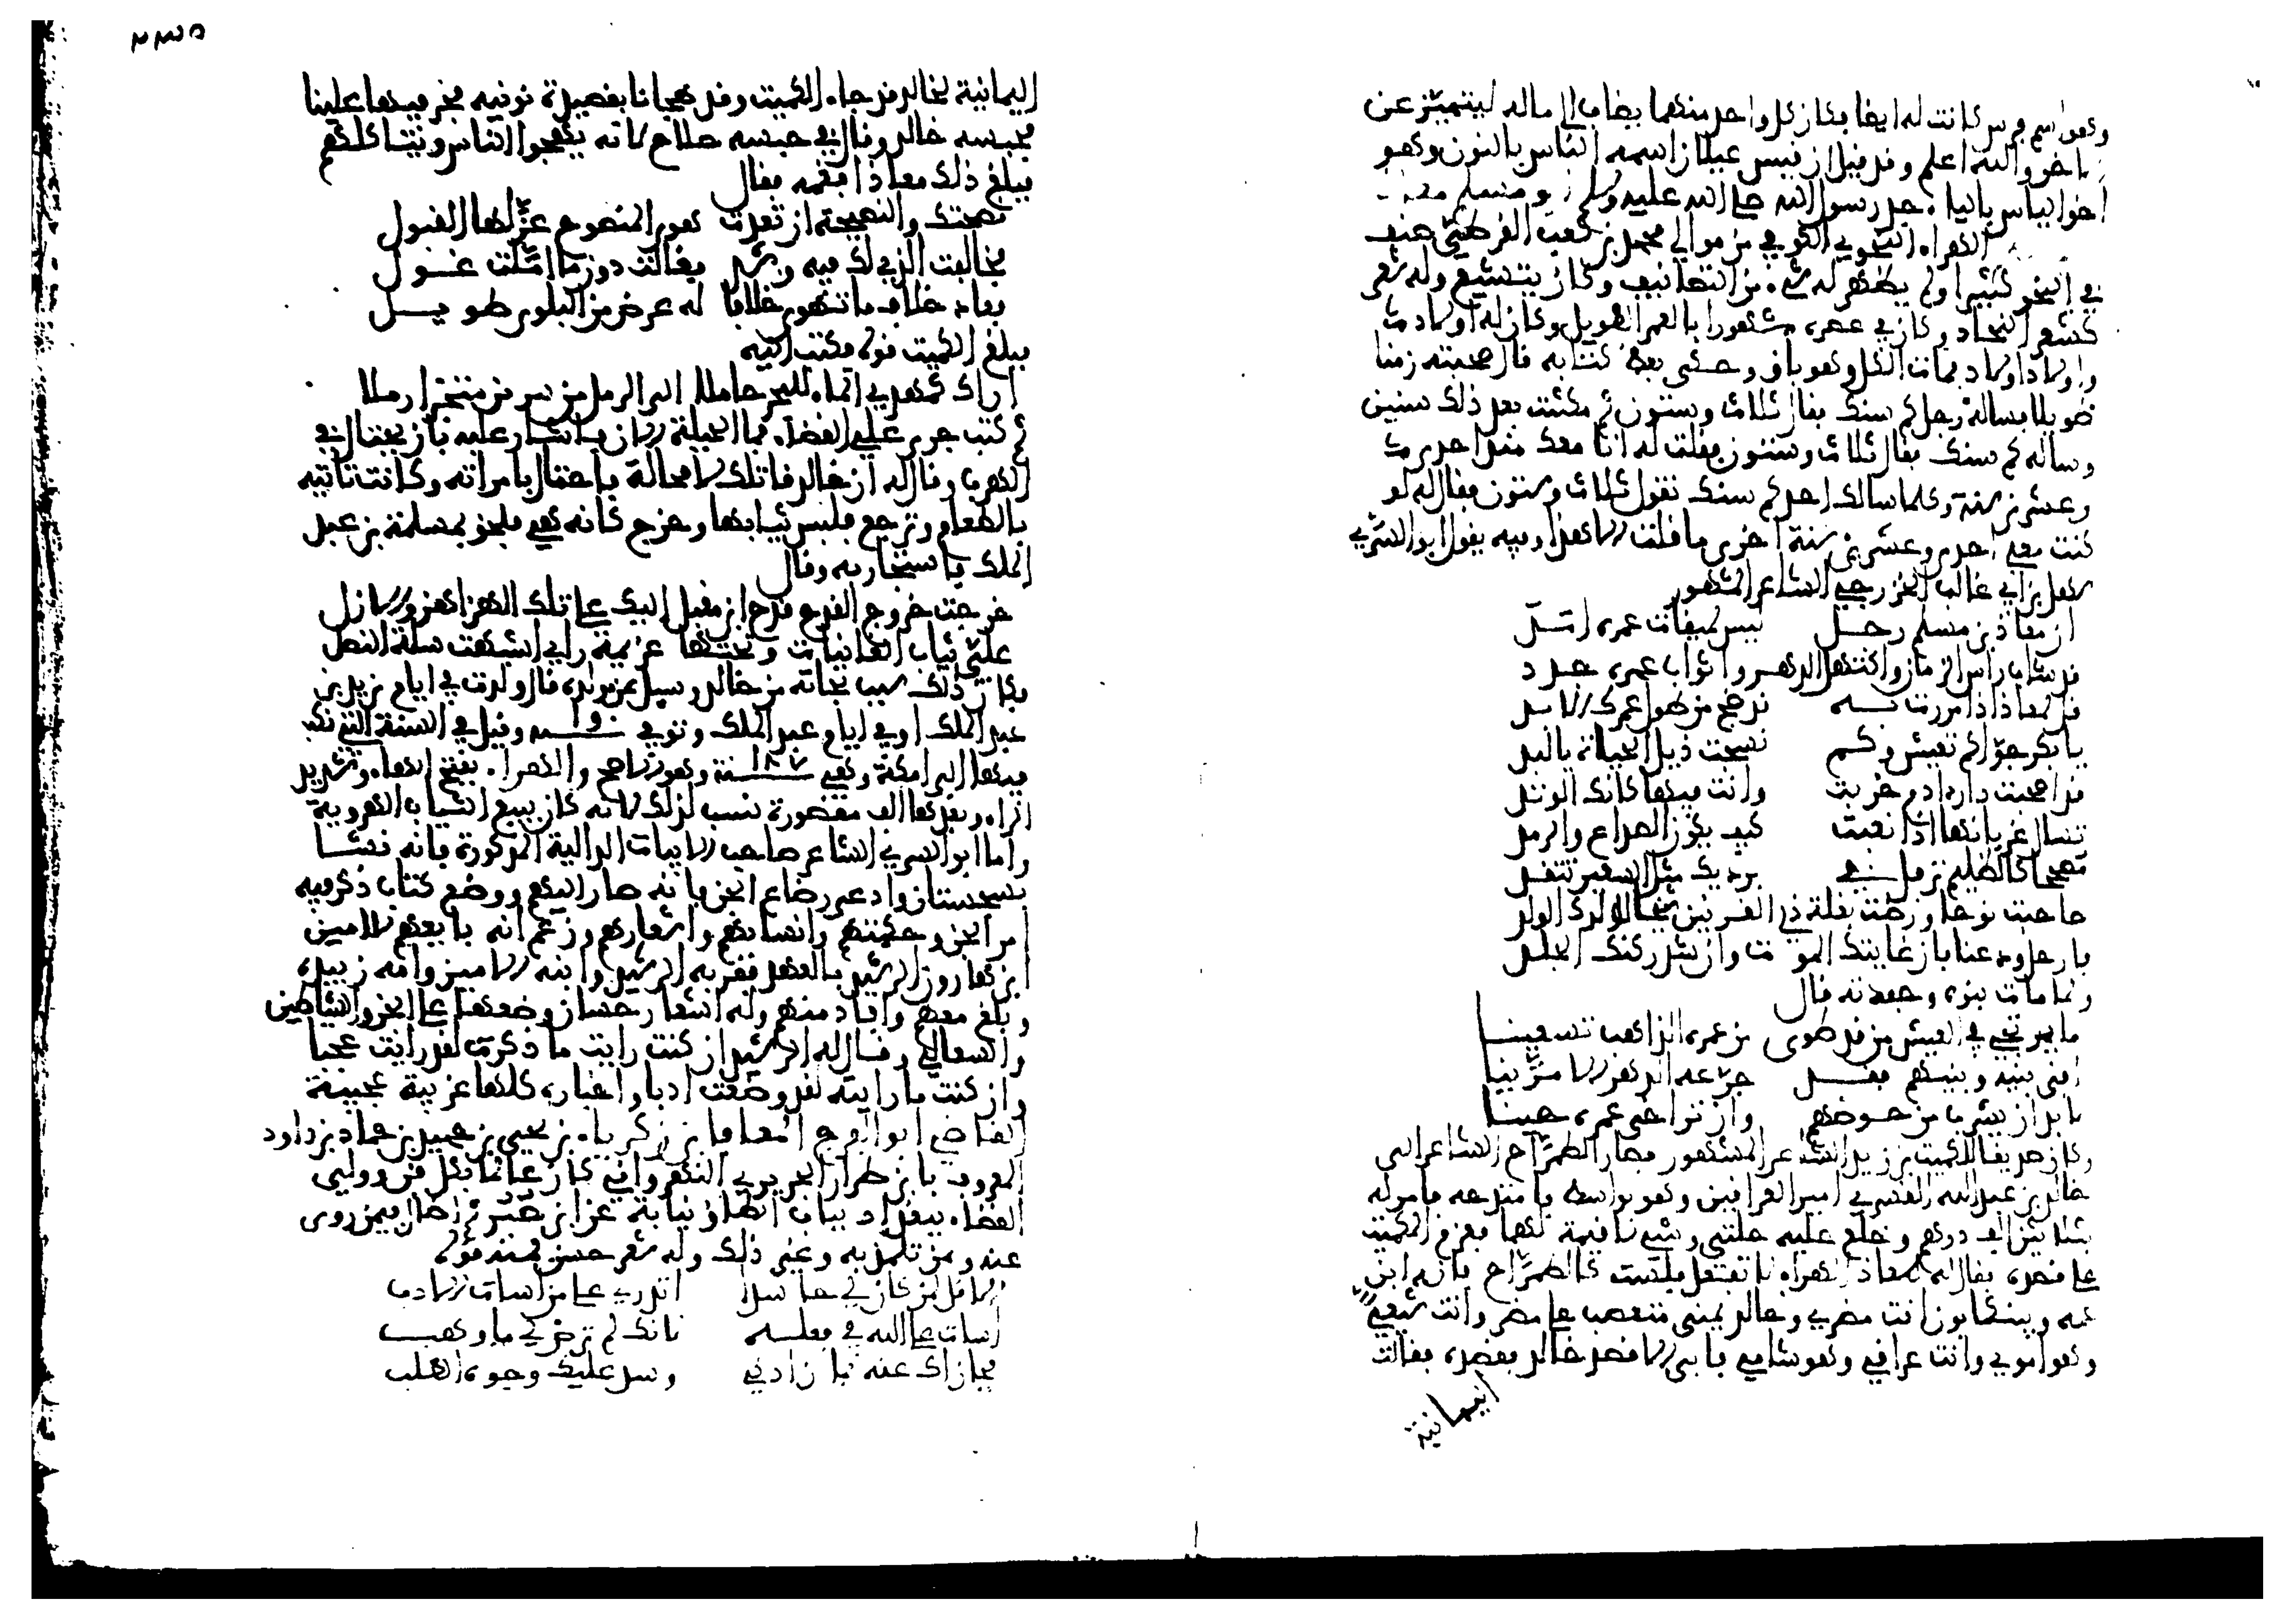 وهو اسم فرس كانت له ايضا فكان كل واحد منهما يضاف الى ماله ليتميز عن
اخر والله اعلم وقد قيل ان قيس عيلان اسمه الناس بالنون وهو
اخو الياس بالياء جد رسول الله صلى الله عليه وسلم ابو مسلم معاذ
الهراء النحوي الكوفي من موالي محمد بن كعب القرظي صنف
في النحو كثيرا ولم يظهر له شيء من التصانيف وكان يتشيع وله شعر
كشعر النحاة وكان في عصره مشهورا بالعمر الطويل وكان له اولاد
واولاد اولاد فمات الكل وهو باق وحكى بعض كتابه قال صحبته زمنا
طويلا فساله رجل كم سنك فقال ثلاث وستون ثم مكثت بعد ذلك سنين
وساله كم سنك فقال ثلاث وستون فقلت له انا معك منذ احدى
وعشرين سنة وكلما سالك احد كم سنك تقول ثلاث وستون فقال لو
كنت معي احدى وعشرين سنة اخرى ما قلت الا هذا وفيه يقول ابو السري
سهل بن ابي غالب الخزرجي الشاعر المشهور
ان معاذ بن مسلم رجل ليس لميقات عمره امد
قد شاب راس الزمان واكتهل الدهر واثواب عمره جدد
قل لمعاذ اذا مررت به قد ضج من طول عمرك الابد
يا بكر حواء كم تعيش وكم تسحب ذيل الحياة يا لبد
قد اصبحت دار ادم خربت وانت فيها كانك الوتد
تسال غربانها اذا نعبت كيف يكون الصداع والرمد
مصححا كالظليم ترفل في برديك مثل السعير تتقد
صاحبت نوحا ورضت بغلة ذي القرنين شيخا لولدك الولد
فارحل ودعنا فان غايتك الموت وان شد ركنك الجلد
ولما مات بنوه وحفدته قال
ما يرتجي في العيش من قد طوى من عمره الذاهب تسعينا
افنى بنيه وبنيهم فقد جرعه الدهر الامرينا
لا بد ان يشرب من حوضهم وان تراخى عمره حينا
وكان صديقا للكميت بن زيد الشاعر المشهور فصار الطرماح الشاعر الى
خالد بن عبد الله القسري امير العراقين وهو بواسط فامتدحه فامر له
بثلاثين الف درهم وخلع عليه حلتي وشي لا قيمة لهما فعزم الكميت
على قصده فقال له معاذ الهراء لا تفعل فلست كالطرماح فانه ابن
عمه وبينكما بون انت مضري وخالد يمني متعصب على مضر وانت شيعي
وهو اموي وانت عراقي وهو شامي فابى الا قصد خالد فقصده فقالت
اليمانية
٢٣٥
اليمانية لخالد قد جاء الكميت وقد هجانا بقصيدة نونية فخر فيها علينا
فحبسه خالد وقال في حبسه صلاح لانه يهجو الناس ويتاكلهم
فبلغ ذلك معاذا فغمه فقال
نصحتك والنصيحة ان تعدت هوى المنصوح عز لها القبول
فخالفت الذي لك فيه رشد فغالت دون ما املت غول
فعاد خلاف ما تهوى خلافا له عرض من البلوى طويل
فبلغ الكميت قوله فكتب اليه
اراك كمهدي الماء للبحر حاملا الى الرمل من يبرين متجرا رملا
ثم كتب جرى علي القضاء فما الحيلة الان فاشار عليه بان يحتال في
الهرب وقال له ان خالد قاتلك لا محالة فاحتال بامراته وكانت تاتيه
بالطعام وترجع فلبس ثيابها وخرج كانه هي فلحق بمسلمة بن عبد
الملك فاستجار به وقال
خرجت خروج القدح قدح ابن مقبل اليك على تلك الهزاهز والازل
علي ثياب الغانيات وتحتها عزيمة راي اشبهت سلة النصل
فكان ذلك سبب نجاته من خالد وسيل عن مولده قال ولدت في ايام يزيد بن
عبد الملك او في ايام عبد الملك وتوفي وقيل في السنة التي نكب
فيها البرامكة وهي سنة ١٨٧ وهو الاصح والهراء بفتح الهاء وتشديد
الراء وبعدها الف مقصورة نسب لذلك لانه كان يبيع الثياب الهروية
واما ابو السري الشاعر صاحب الابيات الدالية المذكورة فانه نشا
بسجستان وادعى رضاع الجن وانه صار اليهم ووضع كتاب ذكر فيه
امر الجن وحكمتهم وانسابهم واشعارهم وزعم انه بايعهم للامين
ابن هارون الرشيد بالعهد فقربه الرشيد وابنه الامين وامه زبيدة
وبلغ معهم وافاد منهم وله اشعار حسان وضعها على الجن والشياطين
والسعالي وقال له الرشيد ان كنت رايت ما ذكرت لقد رايت عجبا
وان كنت ما رايته لقد وضعت ادبا واخباره كلها غريبة عجيبة
القاضي ابو الفرج المعافا بن زكرياء بن يحيى بن حميد بن حماد بن داود
المعروف بابن طرار الجريري النهرواني كان عالما بكل فن وولي
القضاء ببغداد بباب الطاق نيابة عن ابن صير ثم اطال فيمن روى
عنه ومن تلمذ به وغير ذلك وله شعر حسن فمنه قوله
الا قل لمن كان لي حاسدا اتدري على من اسات الادب
اسات على الله في فعله لانك لم ترض لي ما وهب
فجازاك عنه بان زادني وسد عليك وجوه الطلب